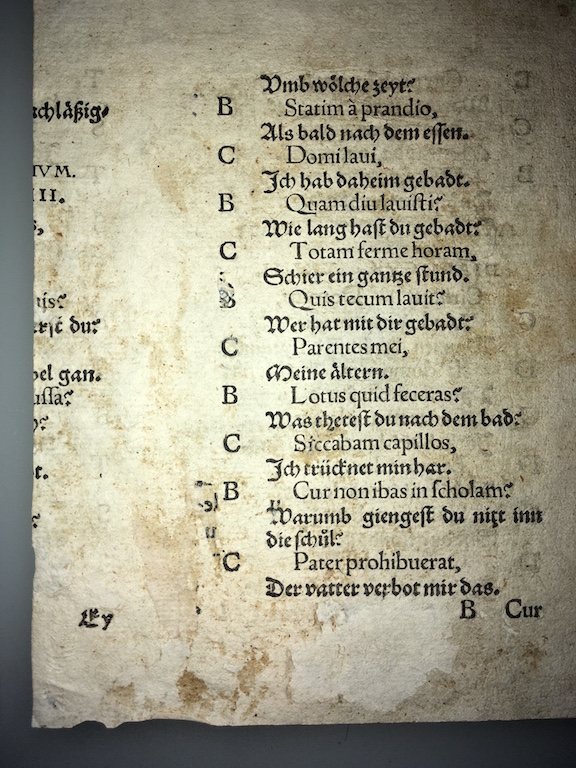 chläßig⸗
IVM.
III.
s,
uis?
du?
el gan.
ussa?
t.
?
Ey
Vmb wölche zeyt?
B Statim à prandio,
Als bald nach dem essen.
C Domi laui,
Jch hab daheim gebadt.
B Quam diu lauisti?
Wie lang hast du gebadt?
C Totam ferme horam,
Schier ein gantze stund.
B Quis tecum lauit?
Wer hat mit dir gebadt?
C Parentes mei,
Meine ältern.
B Lotus quid feceras?
Was thetest du nach dem bad?
C Siccabam capillos,
Jch trücknet min har.
B Cur non ibas in scholam?
Warumb giengest du nit inn
die schůl?
C Pater prohibuerat,
Der vatter verbot mir das.
B Cur